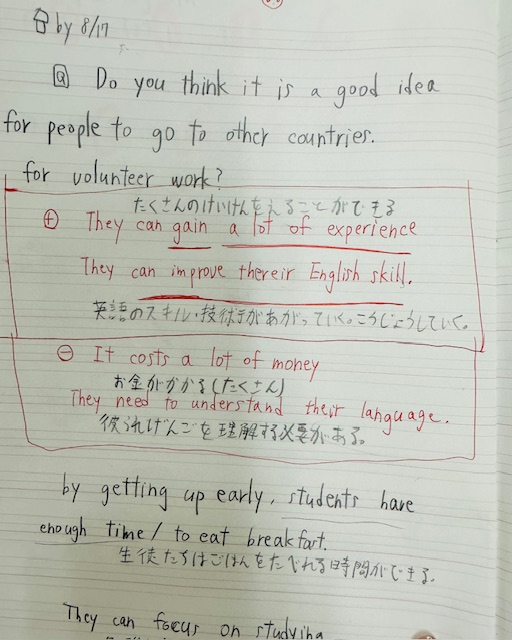 by 8/17
Q Do you think it is a good idea
for people to go to other countries.
for volunteer work?
たくさんのけいけんをえることができる
⊕ They can gain a lot of experience
They can improve thereir English skill.
英語のスキル・技術があがっていく。こうじょうしていく。
⊖ It costs a lot of money
お金がかかる(たくさん)
They need to understand their language.
彼らのげんごを理解する必要がある。
by getting up early, students have
enough time / to eat breakfart.
生徒たちはごはんをたべれる時間ができる。
They can focus on studying